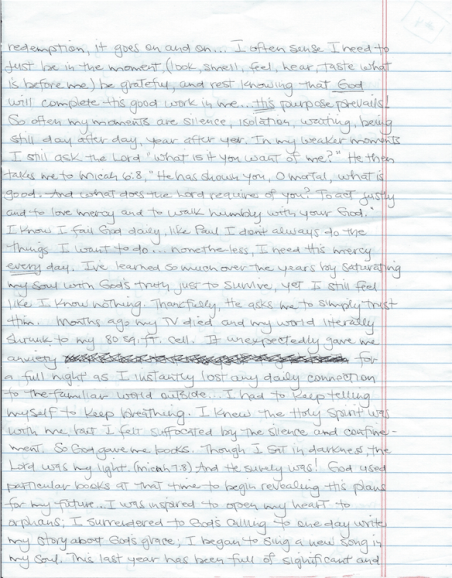 redemption, it goes on and on... I often sense I need to
just be in the moment, (look, smell, feel, hear, taste what
is before me) be grateful, and rest knowing that God
will complete His good work in me... His purpose prevails!
So often my moments are silence, isolation, waiting, being
still day after day, year after year. In my weaker moments
I still ask the Lord "What is it you want of me?" He then
takes me to Micah 6:8, "He has shown you, O mortal, what is
good. And what does the Lord require of you? To act justly
and to love mercy and to walk humbly with your God."
I know I fail God daily, like Paul I don't always do the
things I want to do... nonetheless, I need His mercy
every day. I've learned so much over the years by saturating
my soul with God's truth just to survive, yet I still feel
like I know nothing. Thankfully, He asks me to simply trust
Him. Months ago my TV died and my world literally
shrunk to my 80 sq. ft. cell. It unexpectedly gave me
anxiety for
a full night as I instantly lost any daily connection
to the familiar world outside... I had to keep telling
myself to keep breathing. I knew the Holy Spirit was
with me but I felt suffocated by the silence and confine-
ment. So God gave me books. Though I sat in darkness, the
Lord was my light. (Micah 7:8) And He surely was! God used
particular books at that time to begin revealing His plans
for my future... I was inspired to open my heart to
orphans; I surrendered to God's calling to one day write
my story about God's grace; I began to sing a new song in
my soul. This last year has been full of significant and